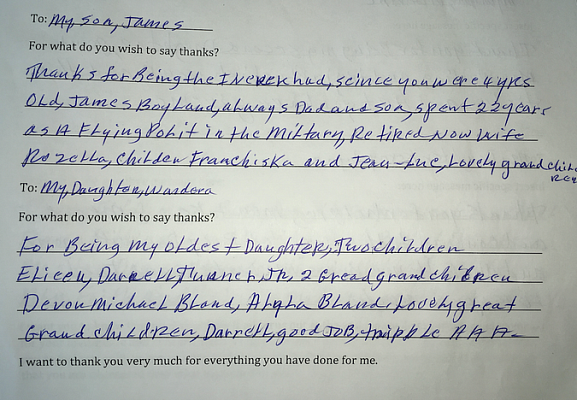 To: My, Son, James
For what do you wish to say thanks?
Thanks for Being the I Never had, scince you were 4 yrs
Old, James Boyland, always Dad and son, spent 22 years
as A Flying Polit in the Miltary, Retired Now wife
Rozella, Childen Franchiska and Jean-Luc, Lovely grand child
ren
To: My, Daughter, Wandera
For what do you wish to say thanks?
For Being my oldest Daughter, Two children
Eliceu, Darrell Jr, 2 Greadgrandchildren
Devon Michael Bland, Alpha Bland, Lovely great
Grand children, Darrell, good JOB, tripple AAA-
I want to thank you very much for everything you have done for me.